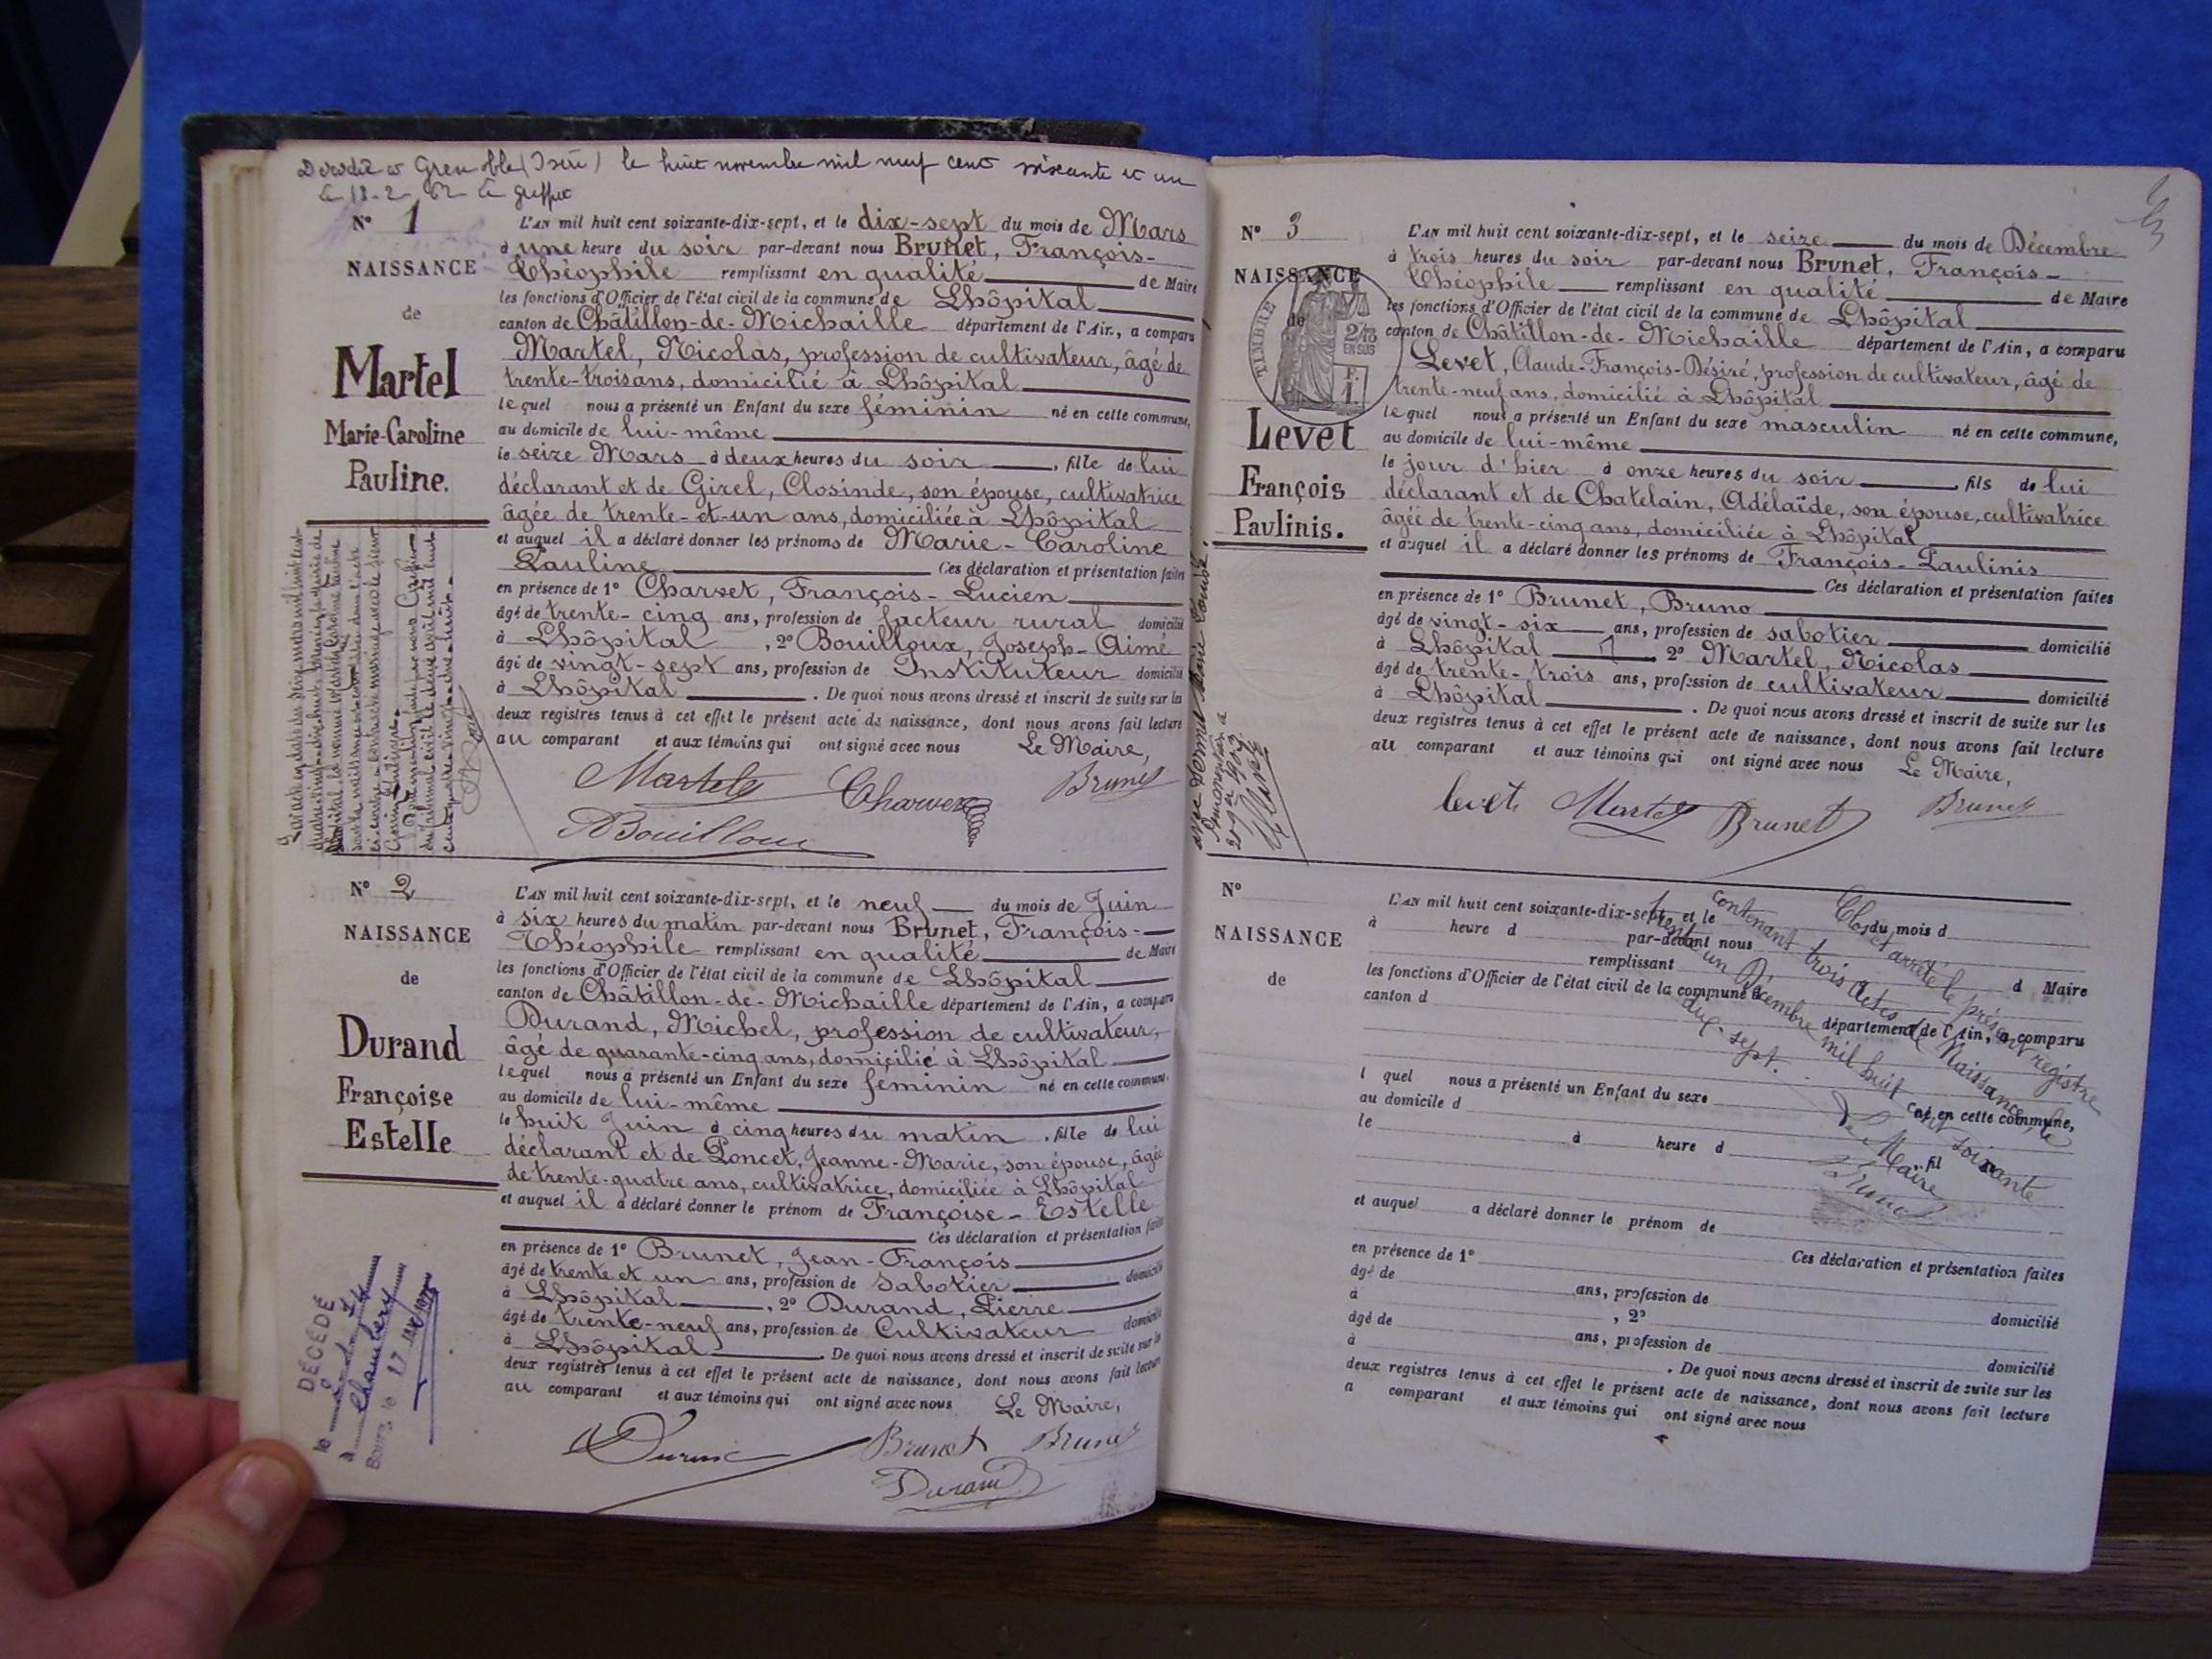 Grenoble (Isère) le huit novembre mil neuf cent soixante et un
N° 1
NAISSANCE
de
Martel
Marie-Caroline
Pauline.
L'AN mil huit cent soixante-dix-sept, et le dix-sept du mois de Mars
à une heure du soir par-devant nous Brunet, François-
Théophile remplissant en qualité de Maire
les fonctions d'Officier de l'état civil de la commune de Lhôpital
canton de Châtillon-de-Michaille département de l'Ain, a comparu
Martel, Nicolas, profession de cultivateur, âgé de
trente-trois ans, domicilié à Lhôpital
lequel nous a présenté un Enfant du sexe féminin né en cette commune,
au domicile de lui-même
le seize Mars à deux heures du soir, fille de lui
déclarant et de Girel, Closinde, son épouse, cultivatrice
âgée de trente-et-un ans, domiciliée à Lhôpital
et auquel il a déclaré donner les prénoms de Marie-Caroline
Pauline Ces déclaration et présentation faites
en présence de 1° Charvet, François-Lucien
âgé de trente-cinq ans, profession de facteur rural domicilié
à Lhôpital, 2° Bouilloux, Joseph-Aimé
âgé de vingt-sept ans, profession de Instituteur domicilié
à Lhôpital. De quoi nous avons dressé et inscrit de suite sur les
deux registres tenus à cet effet le présent acte de naissance, dont nous avons fait lecture
au comparant et aux témoins qui ont signé avec nous Le Maire,
Martel Charvet Brunet
Bouilloux
N° 2
NAISSANCE
de
Durand
Françoise
Estelle
L'AN mil huit cent soixante-dix-sept, et le neuf du mois de Juin
à six heures du matin par-devant nous Brunet, François-
Théophile remplissant en qualité de Maire
les fonctions d'Officier de l'état civil de la commune de Lhôpital
canton de Châtillon-de-Michaille département de l'Ain, a comparu
Durand, Michel, profession de cultivateur,
âgé de quarante-cinq ans, domicilié à Lhôpital
lequel nous a présenté un Enfant du sexe féminin né en cette commune,
au domicile de lui-même
le huit Juin à cinq heures du matin, fille de lui
déclarant et de Poncet, Jeanne-Marie, son épouse, âgée
de trente-quatre ans, cultivatrice, domiciliée à Lhôpital
et auquel il a déclaré donner le prénom de Françoise-Estelle
Ces déclaration et présentation faites
en présence de 1° Brunet, Jean-François
âgé de trente et un ans, profession de Sabotier domicilié
à Lhôpital, 2° Durand, Pierre
âgé de trente-neuf ans, profession de Cultivateur domicilié
à Lhôpital. De quoi nous avons dressé et inscrit de suite sur les
deux registres tenus à cet effet le présent acte de naissance, dont nous avons fait lecture
au comparant et aux témoins qui ont signé avec nous Le Maire,
Durand Brunet Brunet
Durand
DÉCÉDÉ
le
à Chambéry
Bourg, le 17
N° 3
NAISSANCE
de
TIMBRE
2/10
EN SUS
F.
1.
Levet
François
Paulinis.
L'AN mil huit cent soixante-dix-sept, et le seize du mois de Décembre
à trois heures du soir par-devant nous Brunet, François-
Théophile remplissant en qualité de Maire
les fonctions d'Officier de l'état civil de la commune de Lhôpital
canton de Châtillon-de-Michaille département de l'Ain, a comparu
Levet, Claude-François-Désiré, profession de cultivateur, âgé de
trente-neuf ans, domicilié à Lhôpital
lequel nous a présenté un Enfant du sexe masculin né en cette commune,
au domicile de lui-même
le jour d'hier à onze heures du soir, fils de lui
déclarant et de Chatelain, Adélaïde, son épouse, cultivatrice
âgée de trente-cinq ans, domiciliée à Lhôpital
et auquel il a déclaré donner les prénoms de François-Paulinis
Ces déclaration et présentation faites
en présence de 1° Brunet, Bruno
âgé de vingt-six ans, profession de sabotier domicilié
à Lhôpital, 2° Martel, Nicolas
âgé de trente-trois ans, profession de cultivateur domicilié
à Lhôpital. De quoi nous avons dressé et inscrit de suite sur les
deux registres tenus à cet effet le présent acte de naissance, dont nous avons fait lecture
au comparant et aux témoins qui ont signé avec nous Le Maire,
Levet Martel Brunet Brunet
N°
NAISSANCE
de
L'AN mil huit cent soixante-dix-sept, et le du mois d
à heure d par-devant nous
remplissant d Maire
les fonctions d'Officier de l'état civil de la commune d
canton d département de l'Ain, a comparu
l quel nous a présenté un Enfant du sexe né en cette commune,
au domicile d
le à heure d, fil
et auquel a déclaré donner le prénom de
Ces déclaration et présentation faites
en présence de 1°
âgé de ans, profession de domicilié
à, 2°
âgé de ans, profession de domicilié
à. De quoi nous avons dressé et inscrit de suite sur les
deux registres tenus à cet effet le présent acte de naissance, dont nous avons fait lecture
a comparant et aux témoins qui ont signé avec nous
Clos et arrêté le présent registre
contenant trois Actes de Naissance, le
trente un Décembre mil huit cent soixante
dix-sept.
Le Maire
Brunet